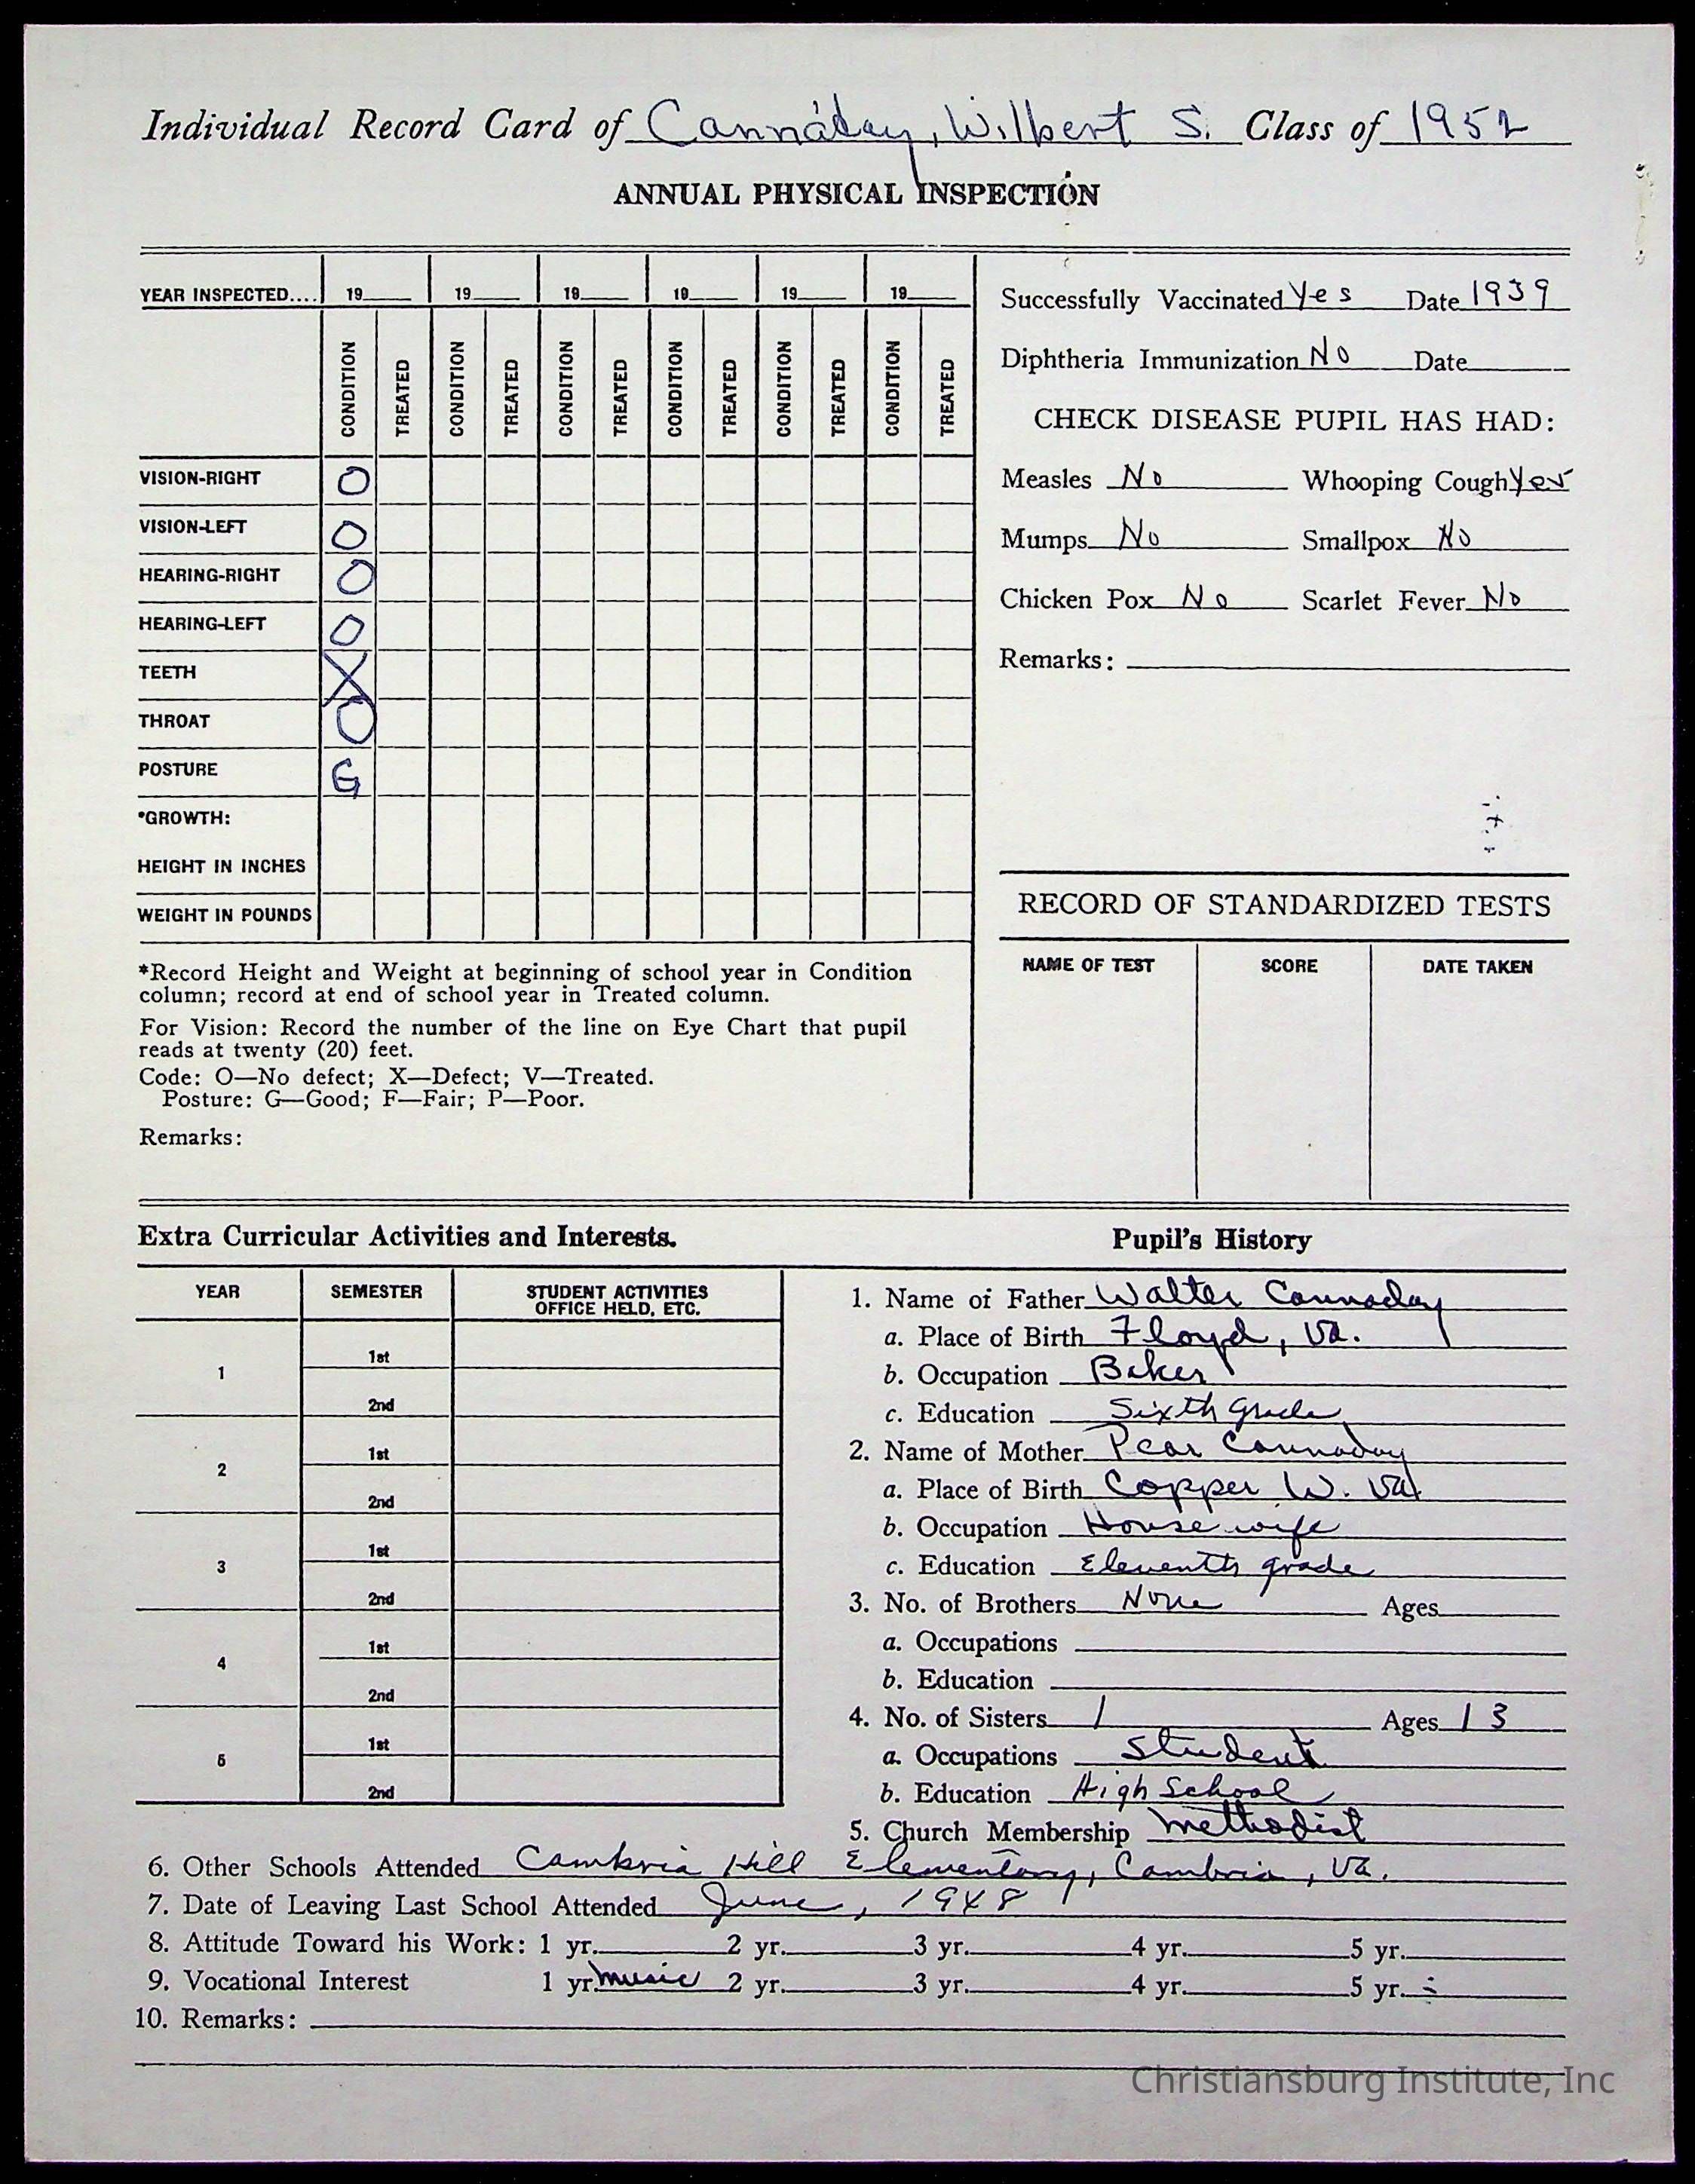 Individual Record Card of Cannaday, Wilbert S. Class of 1952
ANNUAL PHYSICAL INSPECTION
YEAR INSPECTED.... 19 19 19 19 19 19
CONDITION TREATED CONDITION TREATED CONDITION TREATED CONDITION TREATED CONDITION TREATED CONDITION TREATED
VISION-RIGHT O
VISION-LEFT O
HEARING-RIGHT O
HEARING-LEFT O
TEETH X
THROAT O
POSTURE G
*GROWTH:
HEIGHT IN INCHES
WEIGHT IN POUNDS
*Record Height and Weight at beginning of school year in Condition
column; record at end of school year in Treated column.
For Vision: Record the number of the line on Eye Chart that pupil
reads at twenty (20) feet.
Code: O—No defect; X—Defect; V—Treated.
Posture: G—Good; F—Fair; P—Poor.
Remarks:
Successfully Vaccinated Yes Date 1939
Diphtheria Immunization No Date
CHECK DISEASE PUPIL HAS HAD:
Measles No Whooping Cough Yes
Mumps No Smallpox No
Chicken Pox No Scarlet Fever No
Remarks:
RECORD OF STANDARDIZED TESTS
NAME OF TEST SCORE DATE TAKEN
Extra Curricular Activities and Interests.
YEAR SEMESTER STUDENT ACTIVITIES
OFFICE HELD, ETC.
1 1st
2nd
2 1st
2nd
3 1st
2nd
4 1st
2nd
5 1st
2nd
Pupil's History
1. Name of Father Walter Cannaday
a. Place of Birth Floyd, Va.
b. Occupation Baker
c. Education Sixth grade
2. Name of Mother Pear Cannaday
a. Place of Birth Copper W. Va
b. Occupation House wife
c. Education Eleventh grade
3. No. of Brothers None Ages
a. Occupations
b. Education
4. No. of Sisters 1 Ages 13
a. Occupations Student
b. Education High School
5. Church Membership Methodist
6. Other Schools Attended Cambria Hill Elementary, Cambria, Va.
7. Date of Leaving Last School Attended June, 1948
8. Attitude Toward his Work: 1 yr. 2 yr. 3 yr. 4 yr. 5 yr.
9. Vocational Interest 1 yr. music 2 yr. 3 yr. 4 yr. 5 yr.
10. Remarks:
Christiansburg Institute, Inc